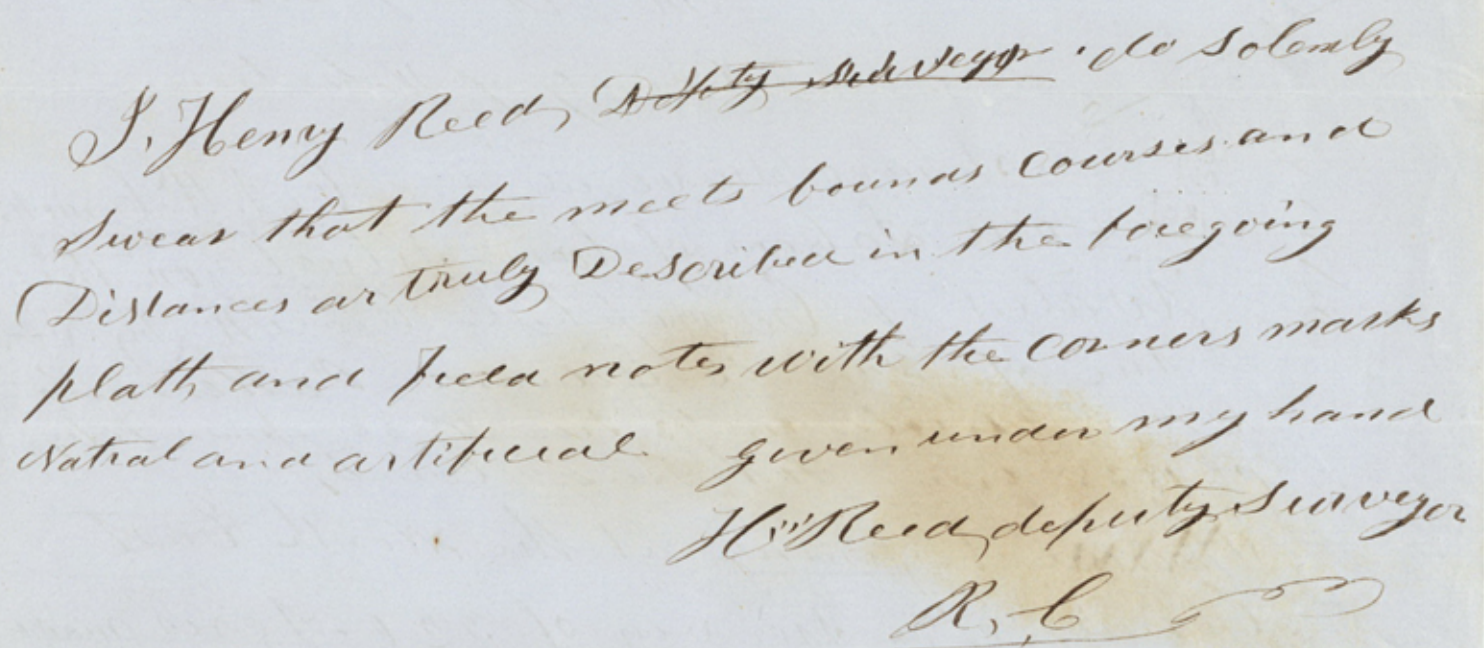 I, Henry Reed, Deputy Surveyor do solemly
Swear that the meets bounds courses and
Distances ar truly Described in the foregoing
platt, and field notes with the corners marks
Natral and artificial given under my hand
H Reed, deputy Surveyor
R. C